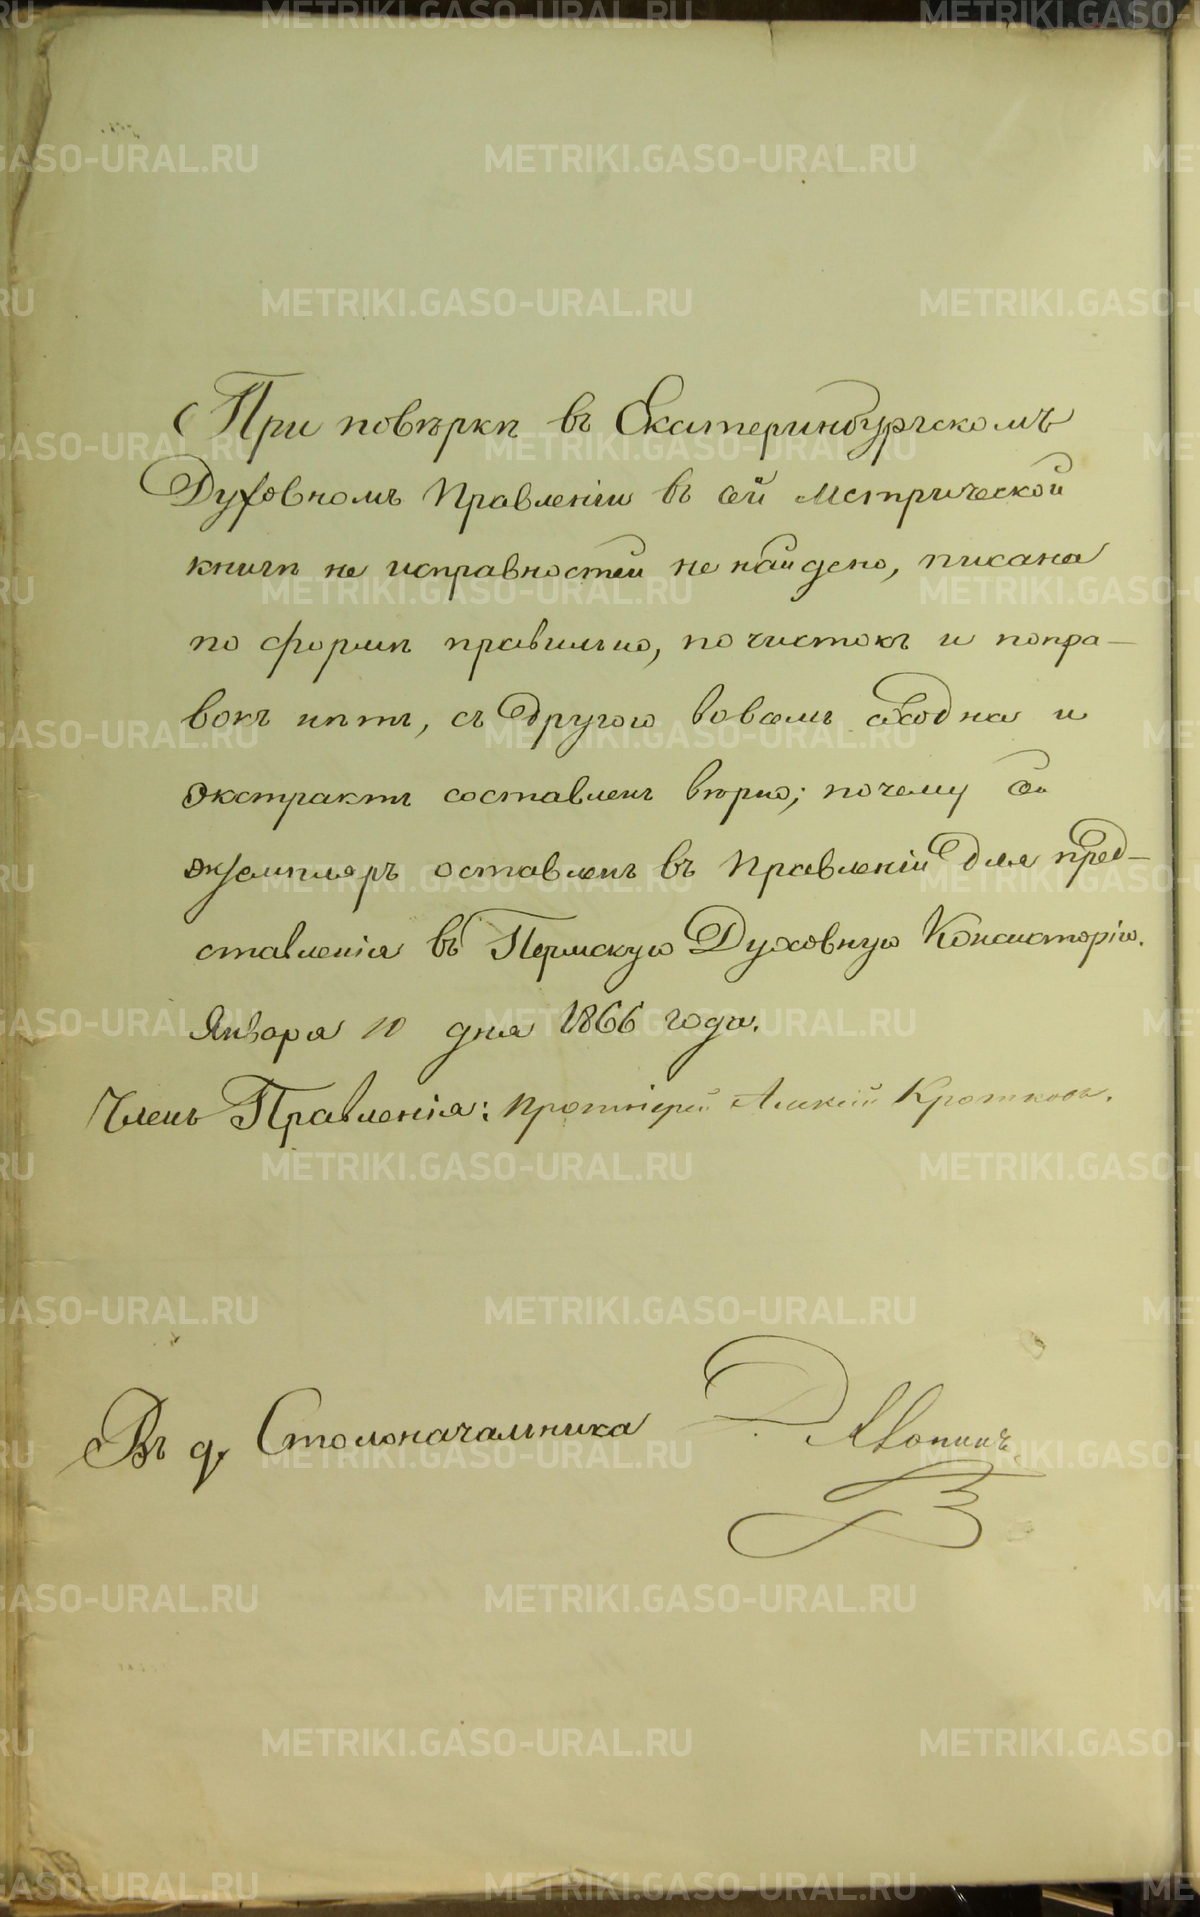 При повѣркѣ въ Екатеринбургскомъ
Духовномъ Правленіи въ сей Метрической
книгѣ не исправностей не найдено, писана
по формѣ правильно, почистокъ и попра-
вокъ нѣтъ, съ другою вовсемъ сходна и
экстрактъ составленъ вѣрно; почему сей
экземпляръ оставленъ въ Правленіи для пред-
ставленія въ Пермскую Духовную Консисторію.
Января 10 дня 1866 года.
Членъ Правленія: Протоіерей Алексій Кротковъ.
Въ д. Столоначальника
METRIKI.GASO-URAL.RU